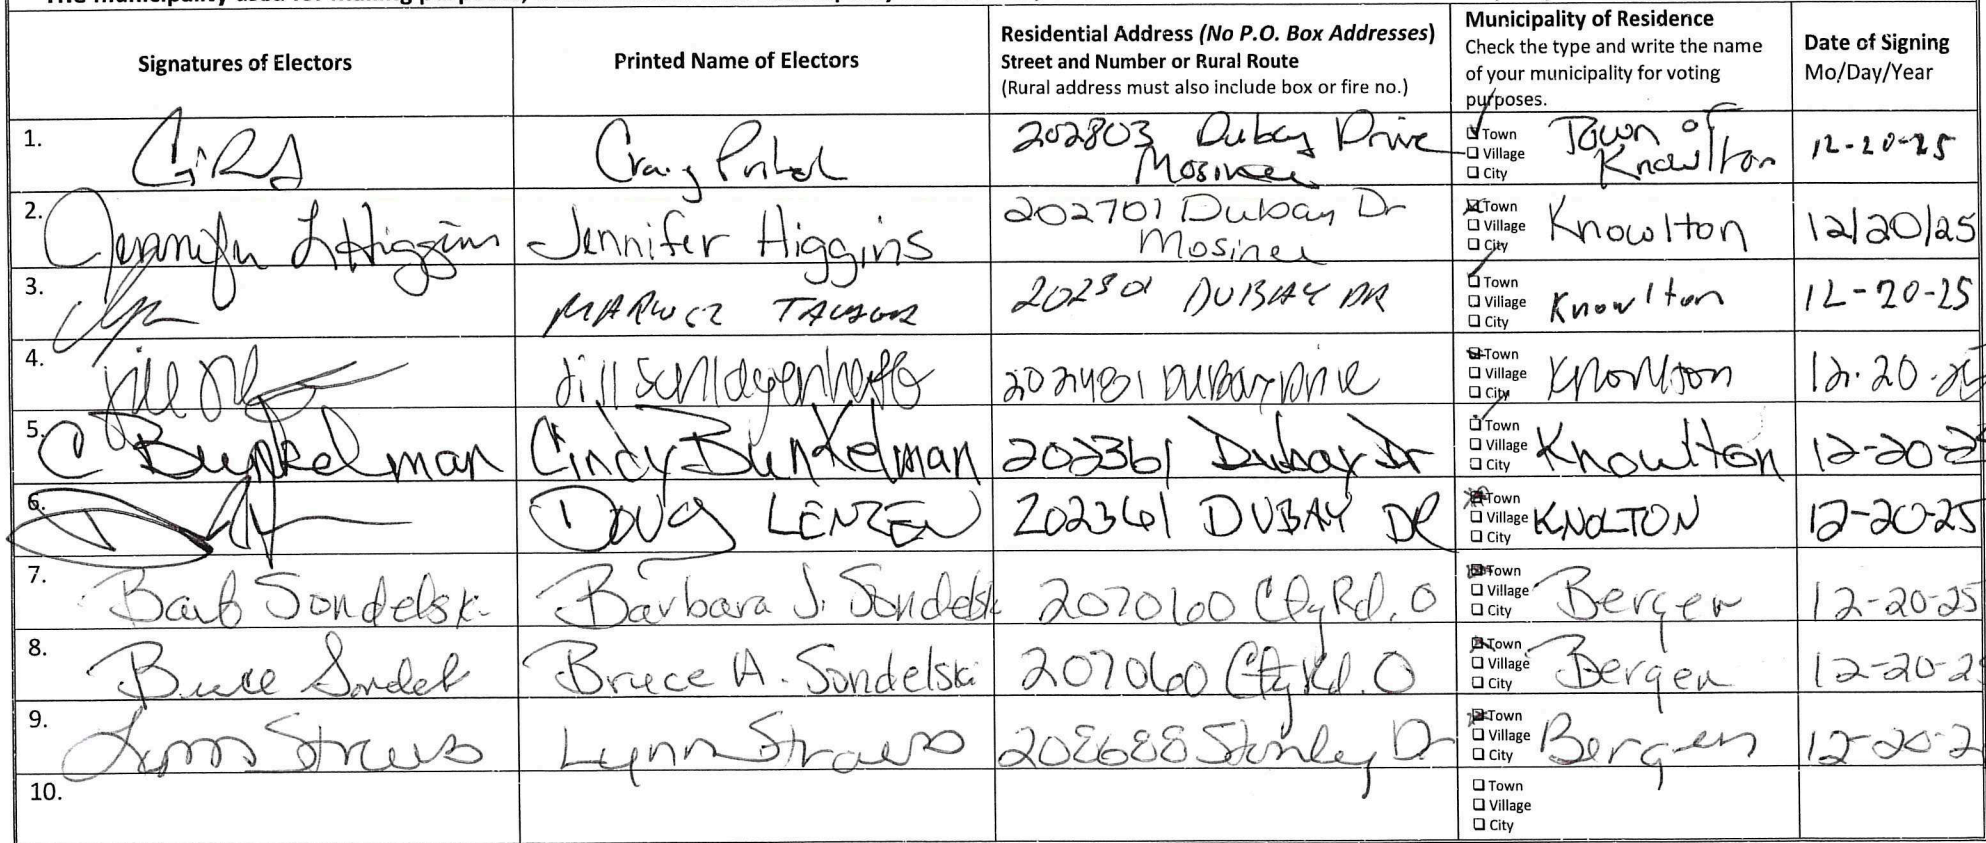 Signatures of Electors
Printed Name of Electors
Residential Address (No P.O. Box Addresses)
Street and Number or Rural Route
(Rural address must also include box or fire no.)
Municipality of Residence
Check the type and write the name
of your municipality for voting
purposes.
Date of Signing
Mo/Day/Year
1.
Craig
202803 Dubay Drive
Mosinee
Town
Village
City
Town of
Knowlton
12-20-25
2.
Jennifer L Higgins
Jennifer Higgins
202701 Dubay Dr
Mosinee
Town
Village
City
Knowlton
12/20/25
3.
DUBAY DR
Town
Village
City
Knowlton
12-20-25
4.
Jill
Jill
Dubay Drive
Town
Village
City
Knowlton
12.20.25
5.
C Bunkelman
Cindy Bunkelman
202361 Dubay Dr
Town
Village
City
Knowlton
12-20-2
6.
DOUG LENZEN
202361 DUBAY DR
Town
Village
City
KNOLTON
12-20-25
7.
Barb Sondelski
Barbara J. Sondelsk
2070100 Cty Rd. O
Town
Village
City
Bergen
12-20-25
8.
Bruce Sondel
Bruce A. Sondelski
207060 Cty Rd. O
Town
Village
City
Bergen
12-20-2
9.
Lynn Straus
Lynn Straus
208688 Stanley Dr
Town
Village
City
Bergen
12-20-2
10.
Town
Village
City